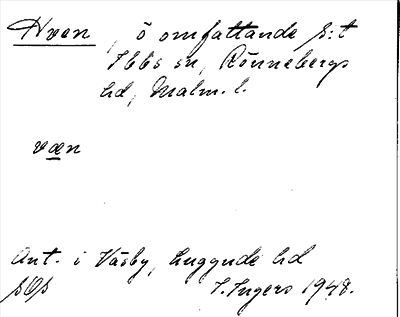 Hven, ö omfattande S:t
Ibbs sn, Rönnebergs
hd, Malm. l.
væn
Ant. i Väsby, Luggude hd
SOs I. Ingers 1948.